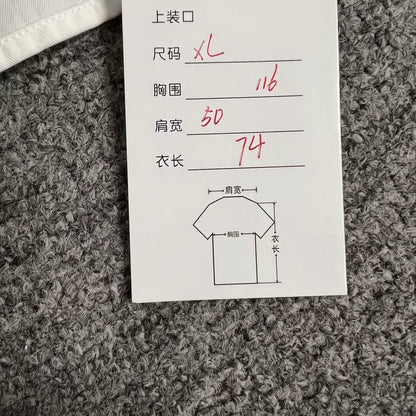 上装口
尺码 XL
胸围 116
肩宽 50
衣长 74
肩宽
胸围
衣长